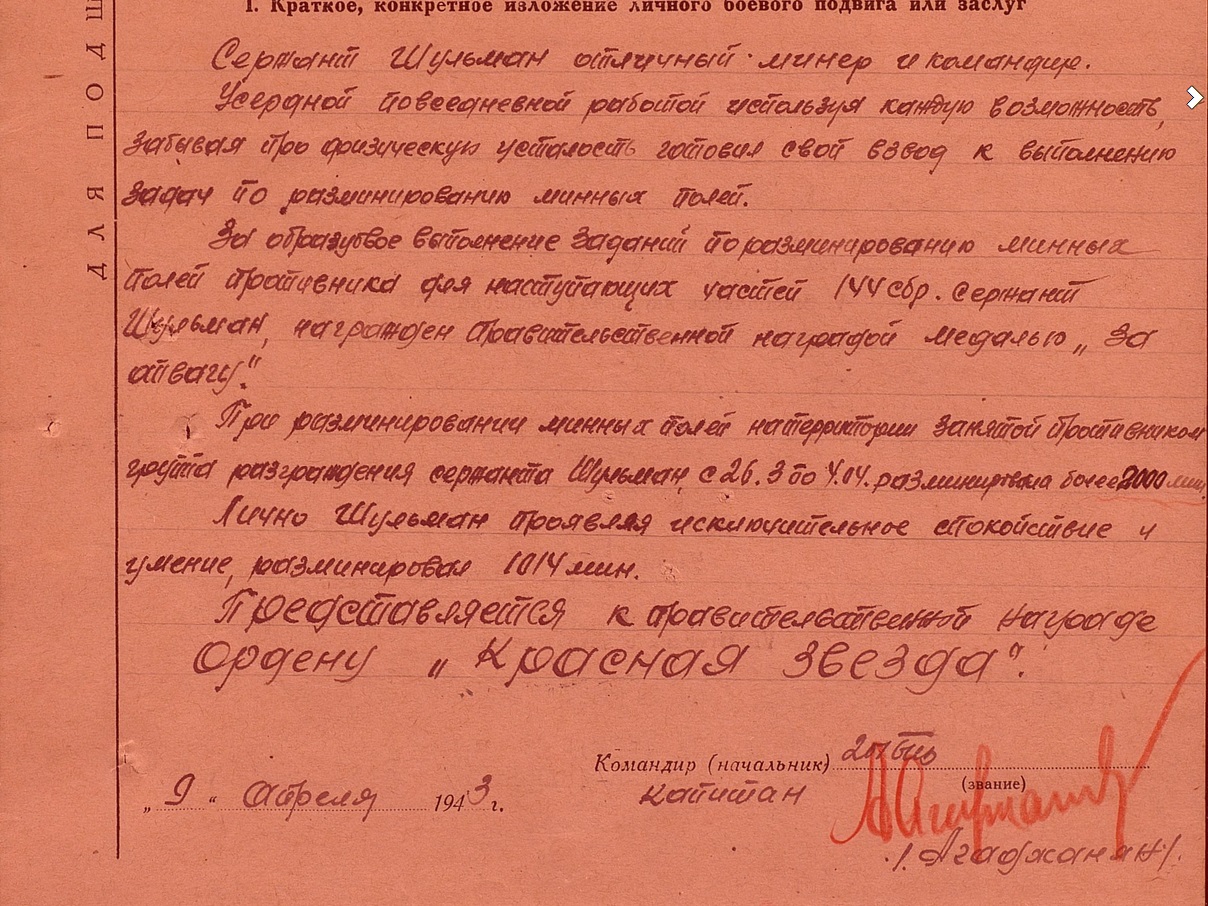 I. Краткое, конкретное изложение личного боевого подвига или заслуг
ДЛЯ ПОДШ
Сержант Шульман отличный минер и командир.
Усердной повседневной работой используя каждую возможность,
забывая про физическую усталость готовил свой взвод к выполнению
задач по разминированию минных полей.
За образцовое выполнение заданий по разминированию минных
полей противника для наступающих частей 144 сбр. сержант
Шульман, награжден правительственной наградой медалью „За
отвагу."
При разминировании минных полей на территории занятой противником
группа разграждения сержанта Шульман, с 26.3 по 4.04. разминировала более 2000 мин.
Лично Шульман проявляя исключительное спокойствие и
умение, разминировал 1014 мин.
Представляется к правительственной награде
Ордену „Красная звезда".
Командир (начальник)
(звание)
капитан
„9" Апреля 1943 г.
/Агаджанян/.